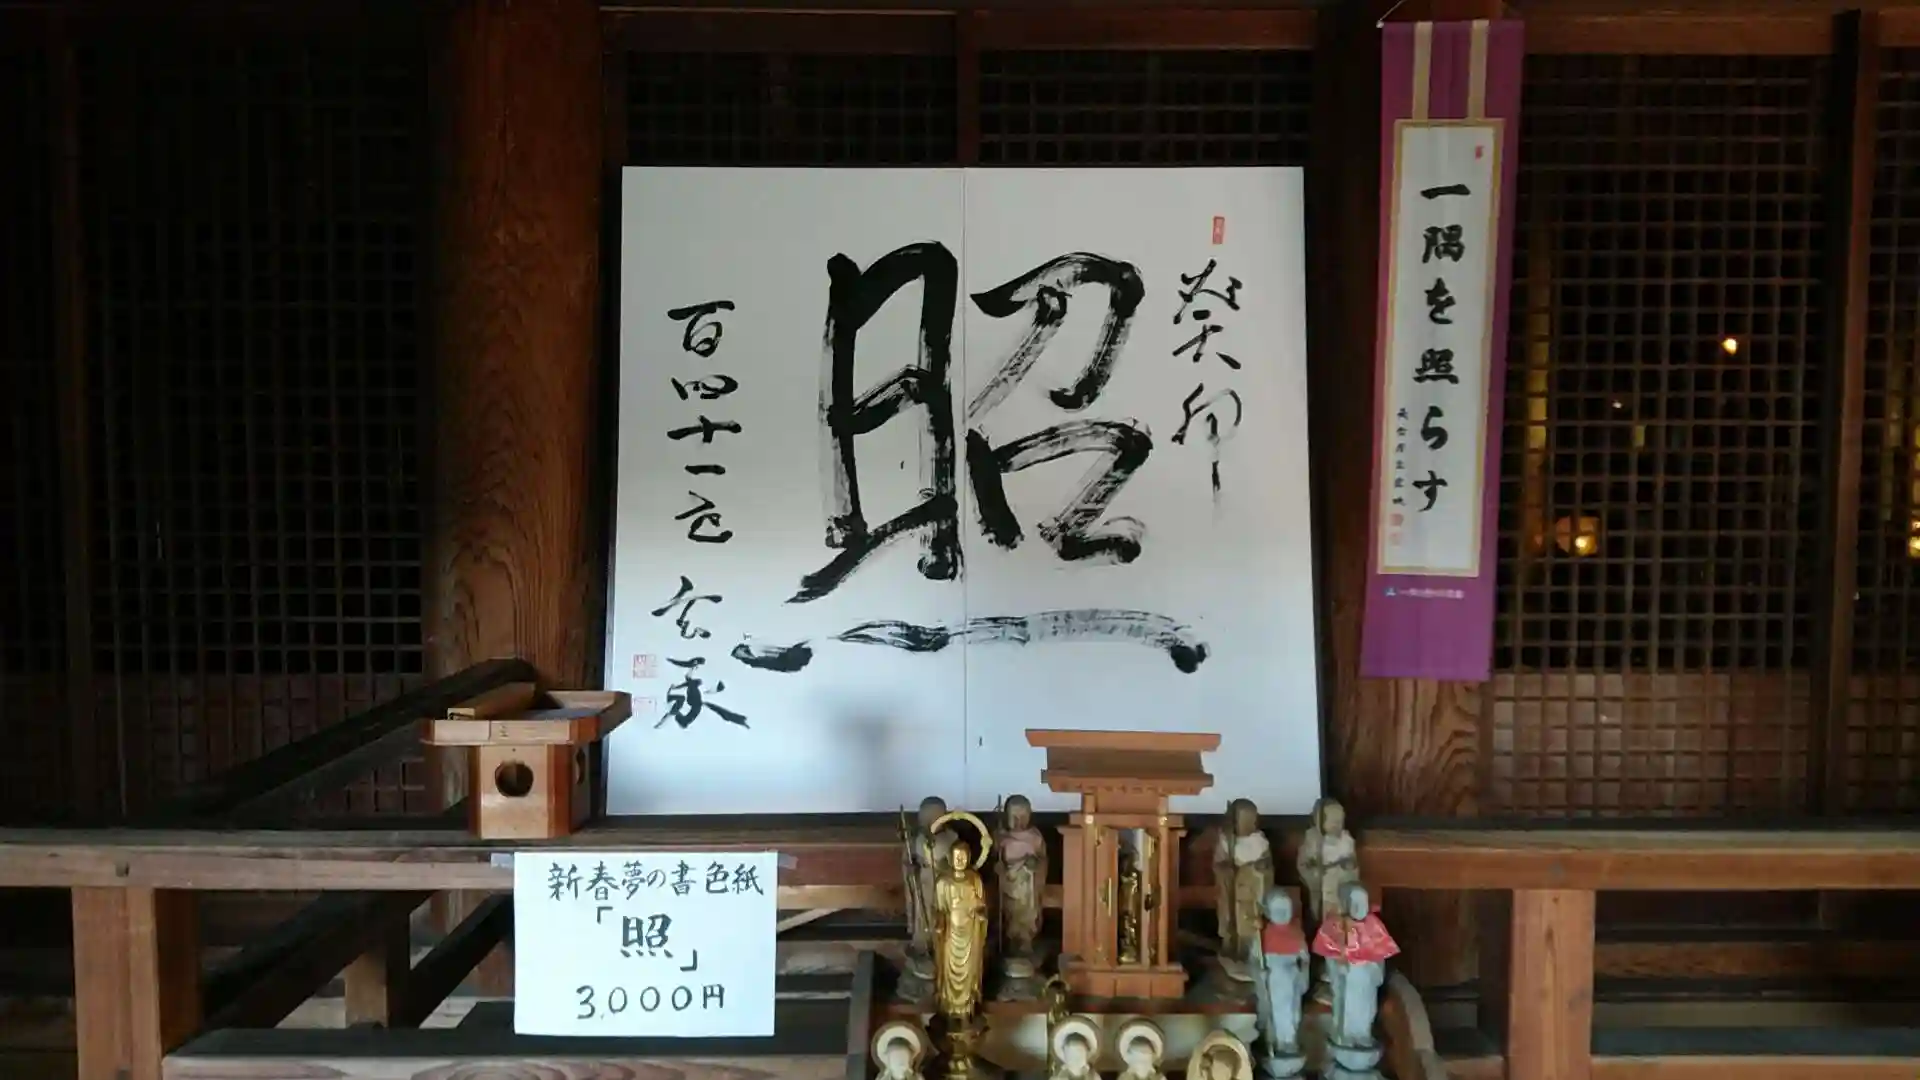 癸卯
照
百四十一世
玄承
一隅を照らす
新春夢の書色紙
「照」
3,000円